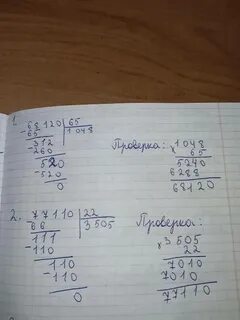 1.
-68120|65
65 |1048
-312 Проверка: ×1048
260 65
520 5240
-520 6288
0 68120
2. 77110|22
66 |3505 Проверка:
-111 ×3505
110 22
110 7010
-110 7010
0 77110